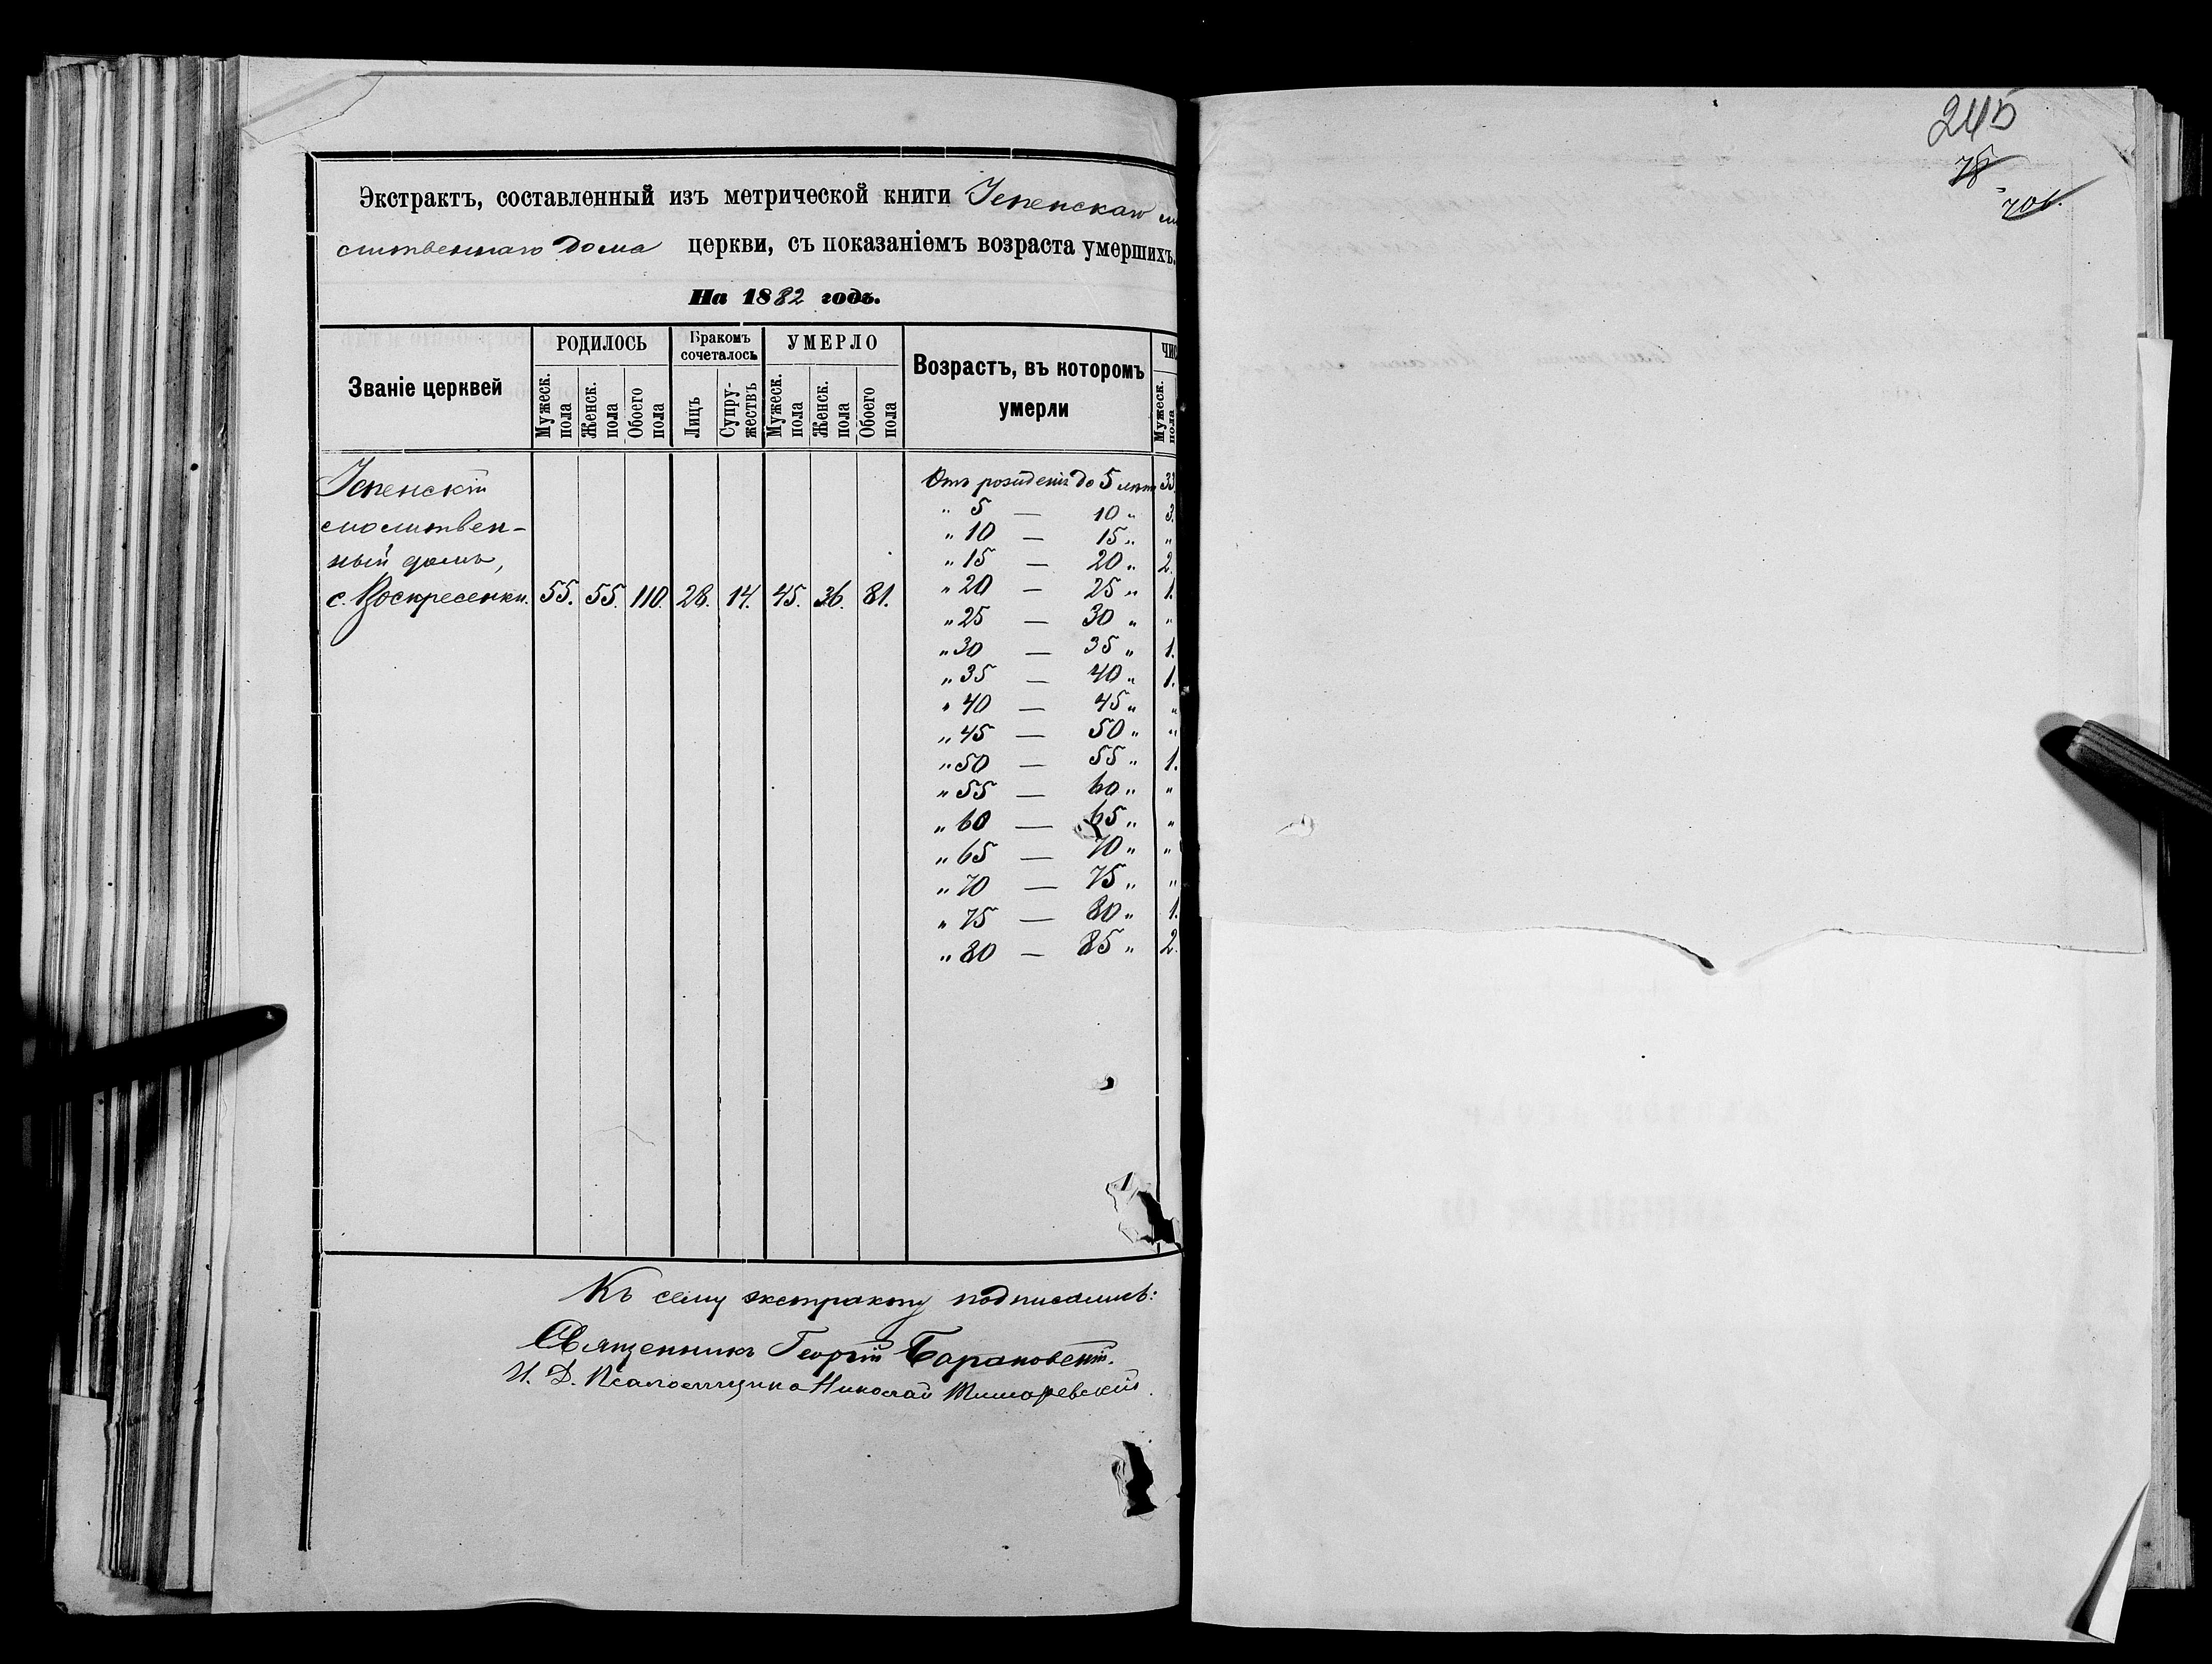 Экстрактъ, составленный изъ метрической книги Успенскаго мо
литвеннаго дома церкви, съ показаніемъ возраста умершихъ.
На 1882 годъ.
Званіе церквей
РОДИЛОСЬ
Мужеск. пола
Женск. пола
Обоего пола
Бракомъ сочеталось
Лицъ
Супружествъ
УМЕРЛО
Мужеск. пола
Женск. пола
Обоего пола
Возрастъ, въ которомъ
умерли
Чис
Мужеск. пола
Успенскій
молитвен-
ный домъ,
с. Воскресенки. 55. 55. 110. 28. 14. 45. 36. 81.
Отъ рожденія до 5 лѣтъ 33
" 5 — 10 " 3.
" 10 — 15 " "
" 15 — 20 " 2.
" 20 — 25 " 1.
" 25 — 30 " "
" 30 — 35 " 1.
" 35 — 40 " 1.
" 40 — 45 " "
" 45 — 50 " "
" 50 — 55 " 1.
" 55 — 60 " "
" 60 — 65 " "
" 65 — 70 " "
" 70 — 75 " "
" 75 — 80 " 1.
" 80 — 85 " 2.
Къ сему экстракту подписались:
Священникъ Георгій Барановскій.
И. Д. Псаломщика Николай
245